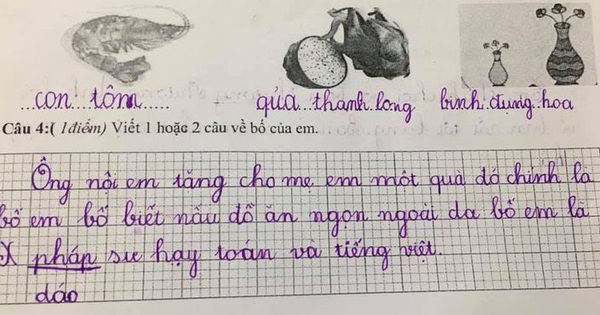 con tôm qủa thanh long bình đựng hoa
Câu 4:( 1điểm) Viết 1 hoặc 2 câu về bố của em.
Ông nội em tặng cho mẹ em một quà đó chính là
bố em bố biết nấu đồ ăn ngon ngoài da bố em là
X pháp sư hay toán và tiếng việt.
dáo